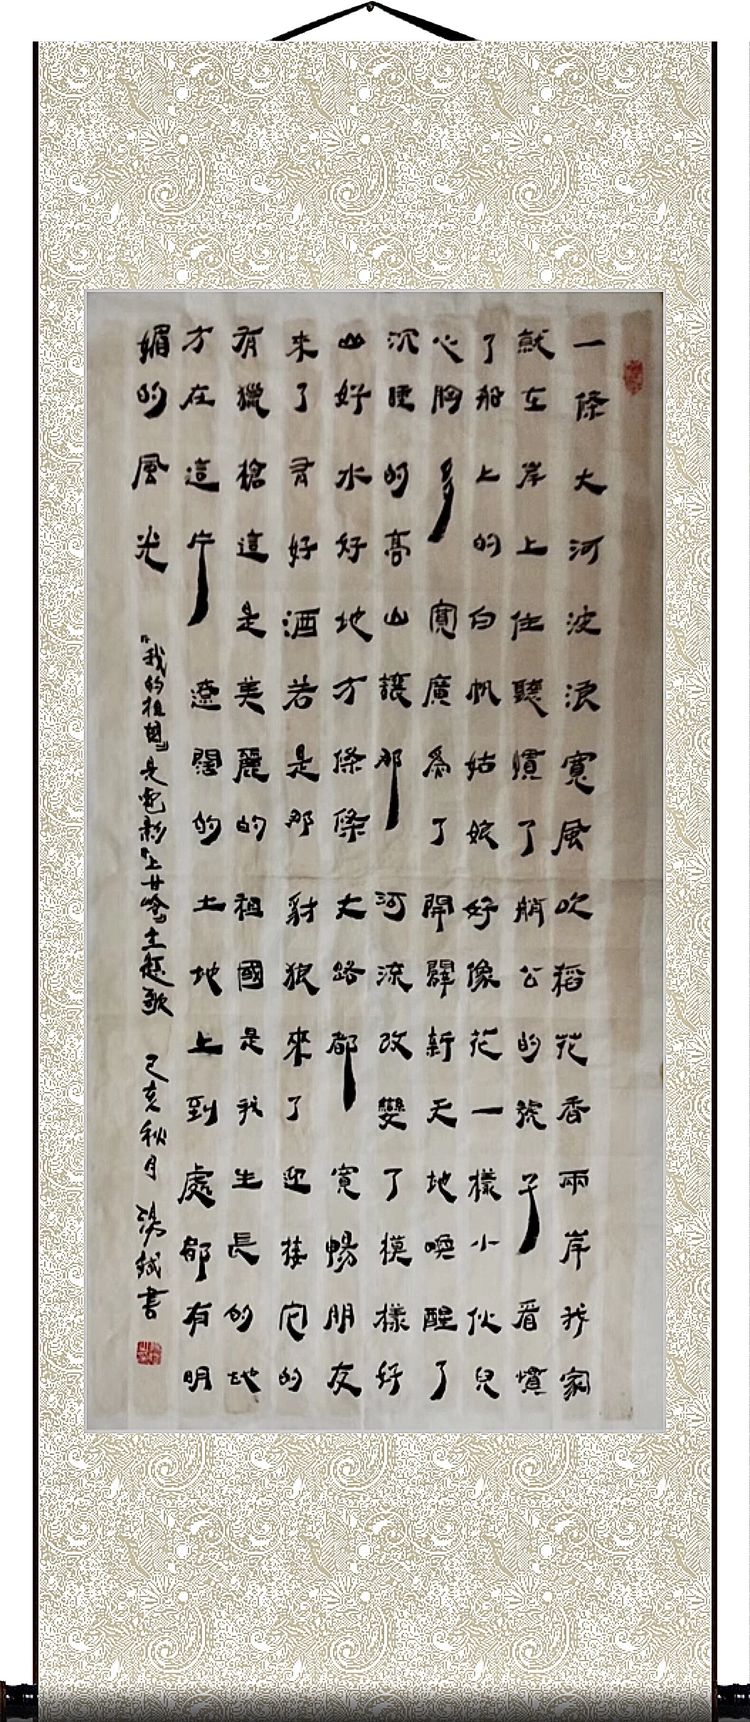 一條大河波浪寬風吹稻花香兩岸我家
就在岸上住聽慣了艄公的號子看慣
了船上的白帆姑娘好像花一樣小伙兒
心胸多寬廣為了開闢新天地喚醒了
沉睡的高山讓那河流改變了模樣好
山好水好地方條條大路都寬暢朋友
來了有好酒若是那豺狼來了迎接它的
有獵槍這是美麗的祖國是我生長的地
方在這片遼闊的土地上到處都有明
媚的風光 “我的祖國”是電影“上甘嶺”主題歌 己亥秋月 湯斌書